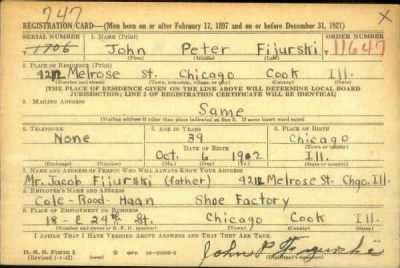 747
REGISTRATION CARD—(Men born on or after February 17, 1897 and on or before December 31, 1921)
SERIAL NUMBER 1. NAME (Print) ORDER NUMBER
1706 John Peter Fijurski 11647
(First) (Middle) (Last)
2. PLACE OF RESIDENCE (Print)
4212 Melrose St. Chicago Cook Ill.
(Number and street) (Town, township, village, or city) (County) (State)
[THE PLACE OF RESIDENCE GIVEN ON THE LINE ABOVE WILL DETERMINE LOCAL BOARD
JURISDICTION; LINE 2 OF REGISTRATION CERTIFICATE WILL BE IDENTICAL]
3. MAILING ADDRESS
Same
(Mailing address if other than place indicated on line 2. If same insert word same)
4. TELEPHONE 5. AGE IN YEARS 6. PLACE OF BIRTH
None 39 Chicago
DATE OF BIRTH (Town or county)
Oct. 6 1902 Ill.
(Exchange) (Number) (Mo.) (Day) (Yr.) (State or country)
7. NAME AND ADDRESS OF PERSON WHO WILL ALWAYS KNOW YOUR ADDRESS
Mr. Jacob Fijurski (father) 4212 Melrose St. Chgo. Ill.
8. EMPLOYER'S NAME AND ADDRESS
Cole-Rood-Haan Shoe Factory
9. PLACE OF EMPLOYMENT OR BUSINESS
18 - E 24th St. Chicago Cook Ill.
(Number and street or R. F. D. number) (Town) (County) (State)
I AFFIRM THAT I HAVE VERIFIED ABOVE ANSWERS AND THAT THEY ARE TRUE.
D. S. S. Form 1
(Revised 1-1-42) GPO John P. Fijurski